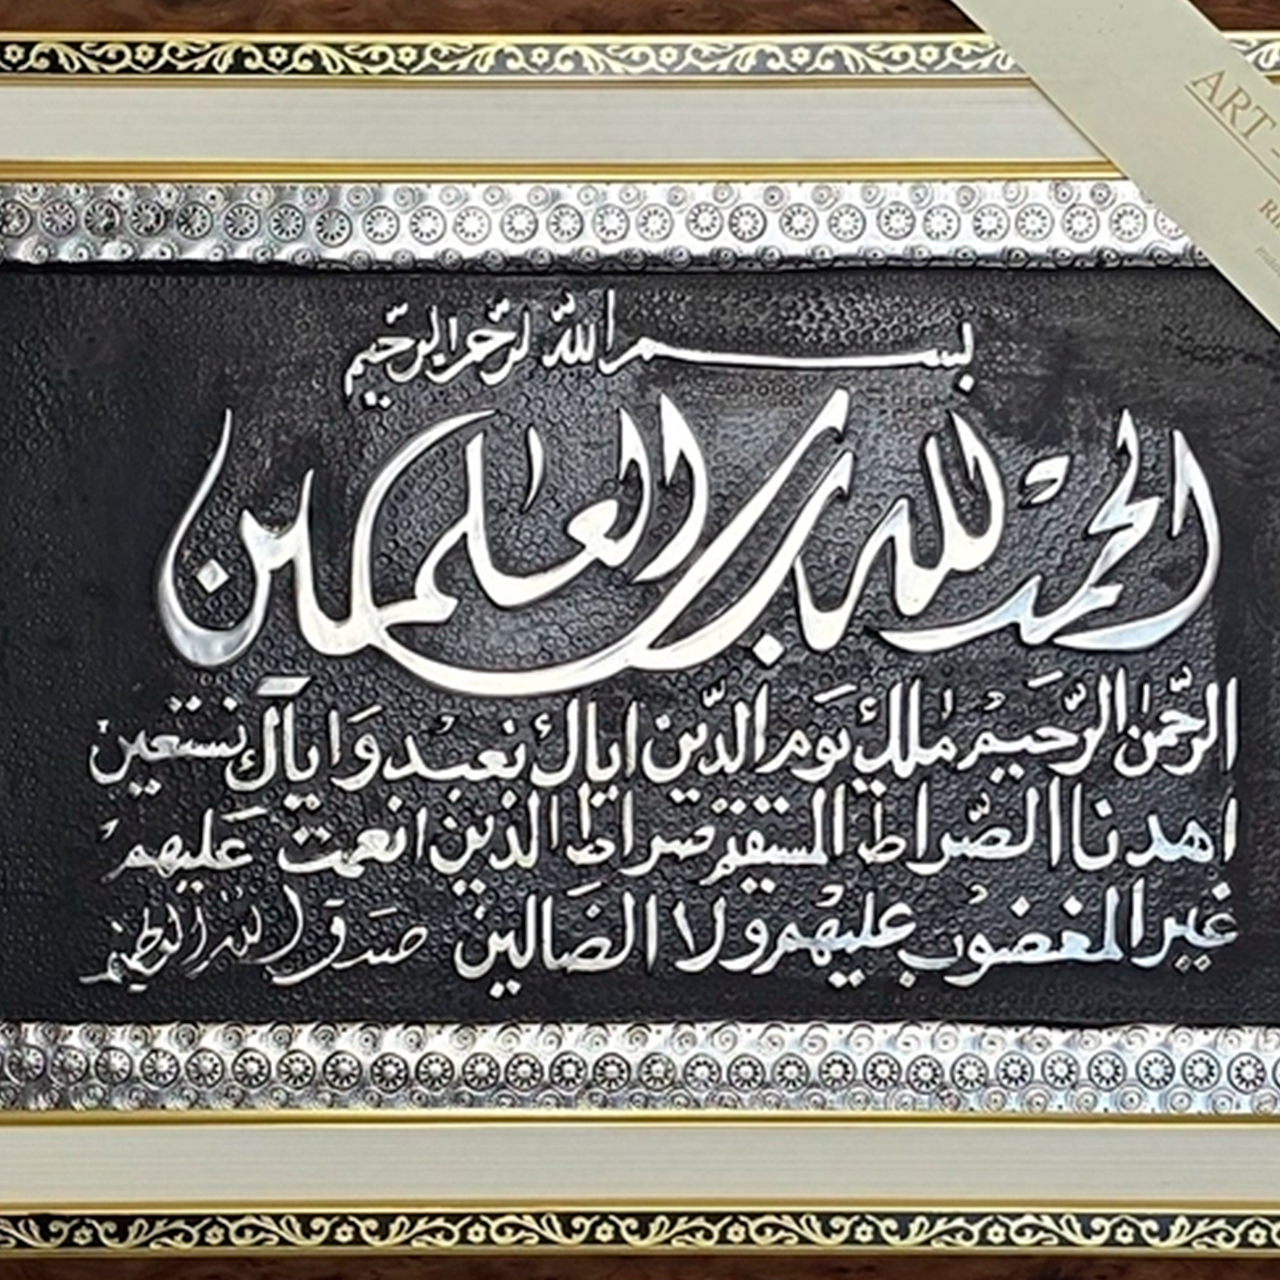 بسم الله الرحمن الرحيم
الحمد لله رب العلمين
الرحمن الرحيم ملك يوم الدين اياك نعبد و اياك نستعين
اهدنا الصراط المستقيم صراط الذين انعمت عليهم
غير المغضوب عليهم ولا الضالين صدق الله العظيم
ART